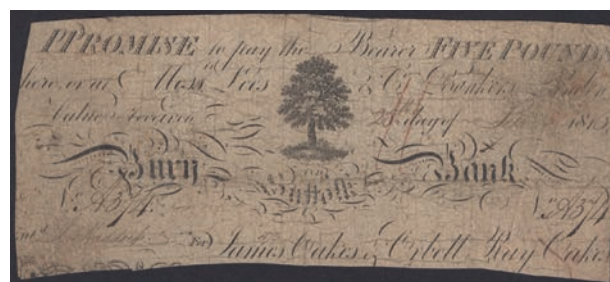 I PROMISE to pay the Bearer FIVE POUNDS
here, or at Mess.rs & Co. Bankers
Value received 28 day of 181
Bury Suffolk Bank
No. A374. No. A374
For James Oakes, Orbell Ray Oakes